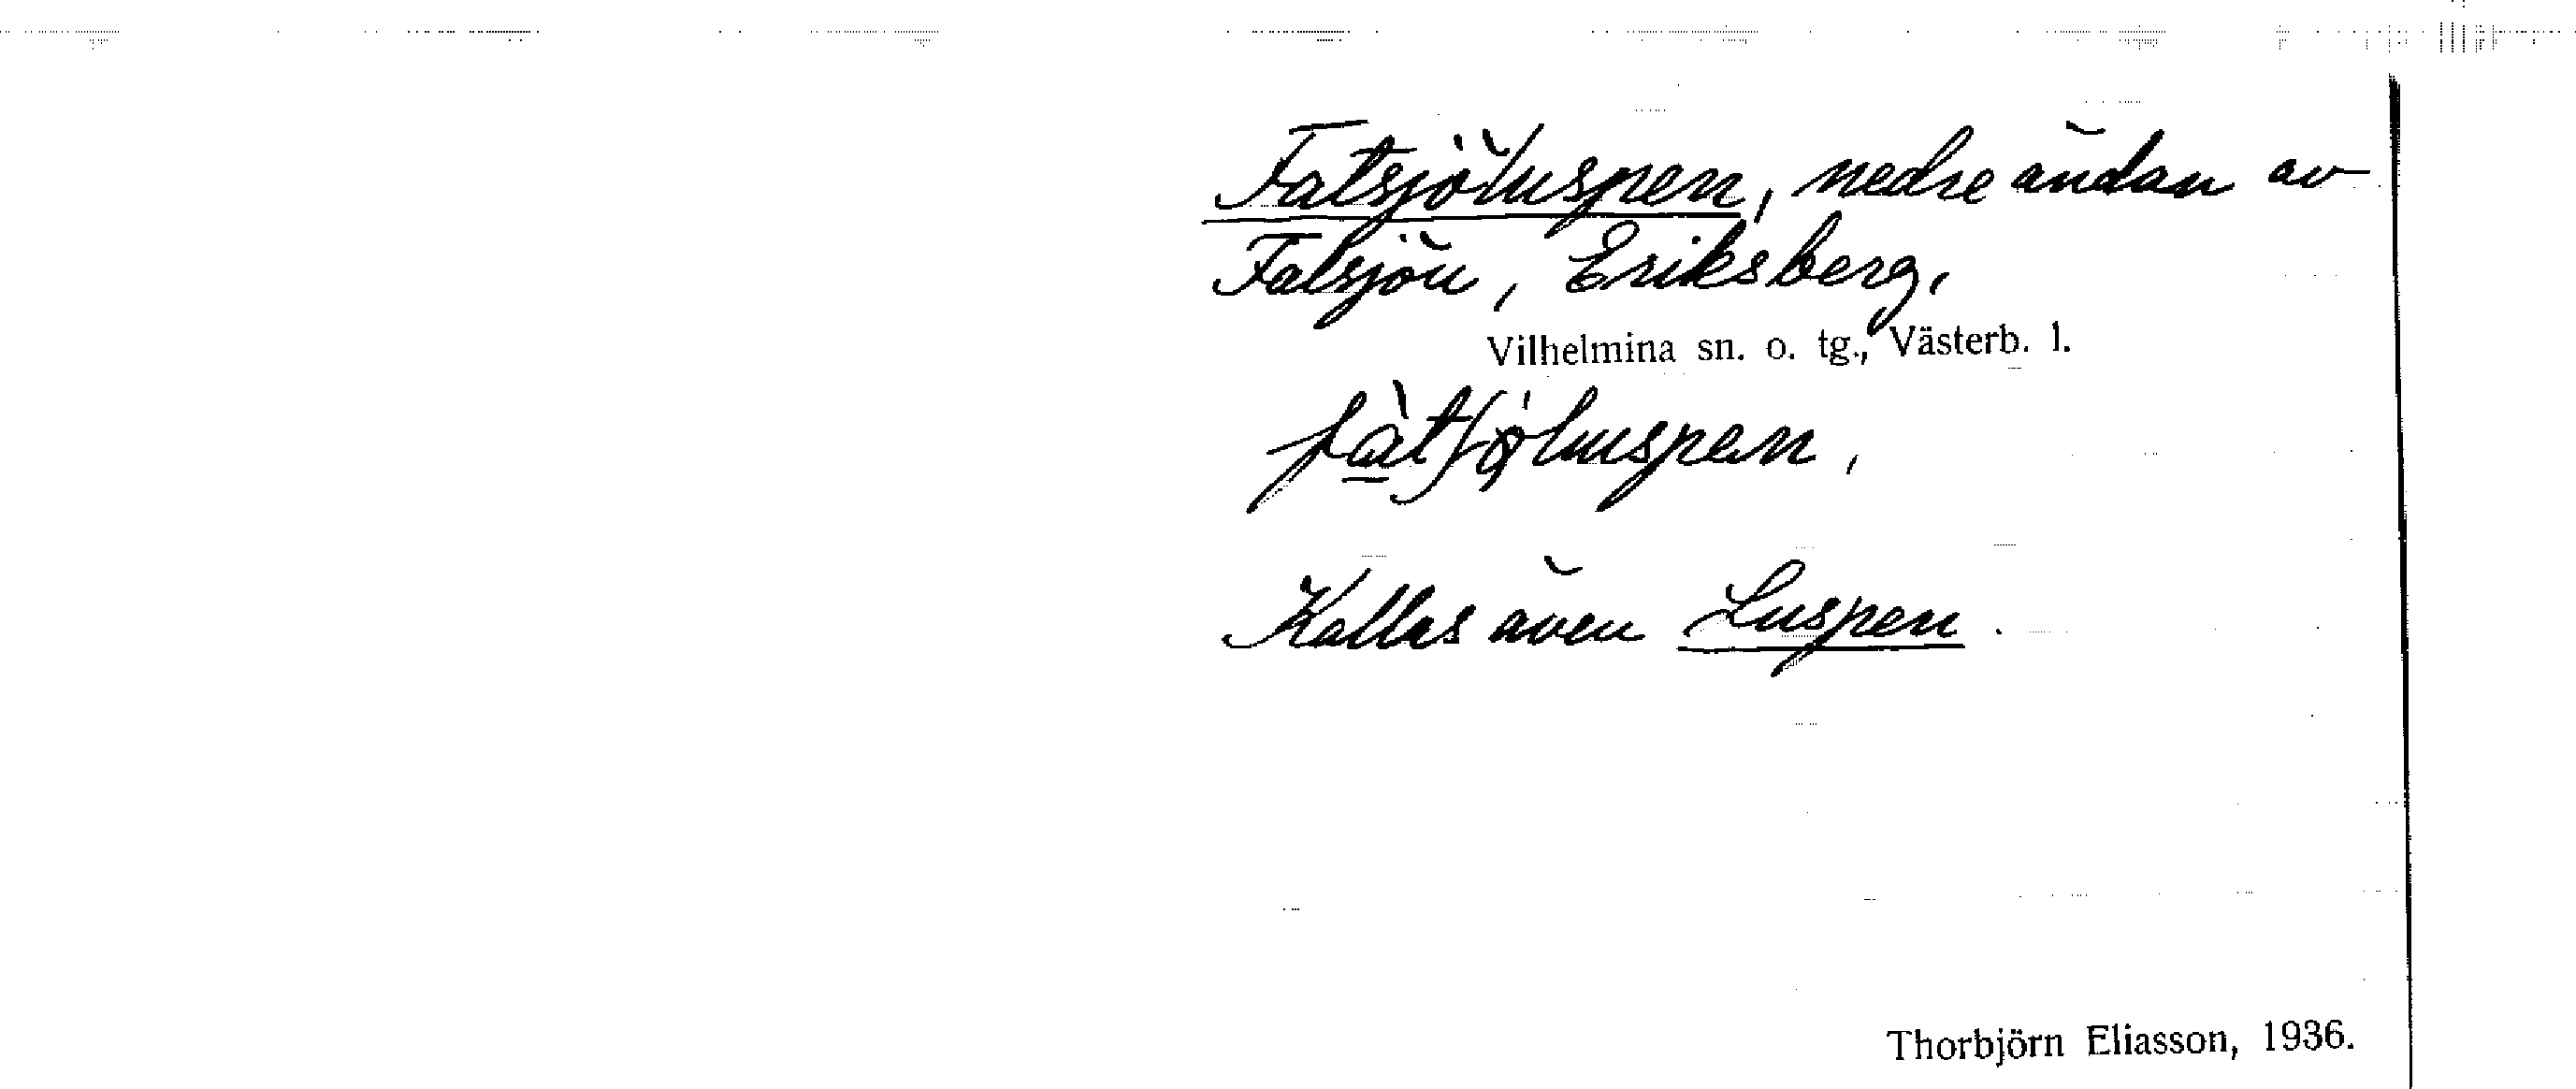 Fatsjöluspen, nedre ändan av
Fatsjön, Eriksberg,
Vilhelmina sn. o. tg., Västerb. l.
Kallas även Luspen.
Thorbjörn Eliasson, 1936.